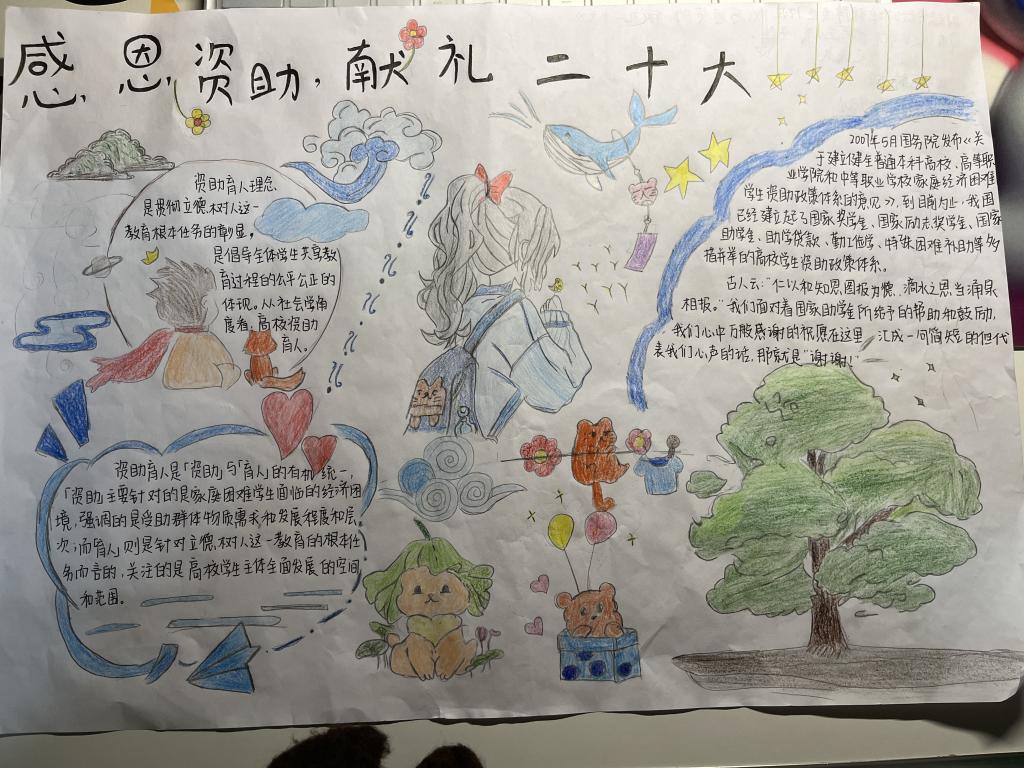 感恩资助,献礼二十大
资助育人理念,
是贯彻立德树人这一
教育根本任务的彰显。
是倡导全体学生共享教
育过程的公平公正的
体现。从社会学角
度看,高校资助
育人。
2007年5月国务院发布《关
于建立健全普通本科高校、高等职
业学院和中等职业学校家庭经济困难
学生资助政策体系的意见》,到目前为止,我国
已经建立起了国家奖学金、国家励志奖学金、国家
助学金、助学贷款、勤工俭学、特殊困难补助等多
措并举的高校学生资助政策体系。
古人云:"仁以和知恩图报为德,滴水之恩当涌泉
相报。"我们面对着国家助学金所给予的帮助和鼓励,
我们心中万般感谢的祝愿在这里,汇成一句简短的但代
表我们心声的话,那就是"谢谢!"
资助育人是「资助」与「育人」的有机统一,
「资助」主要针对的是家庭困难学生面临的经济困
境,强调的是受助群体物质需求和发展程度和层
次;而「育人」则是针对立德树人这一教育的根本任
务而言的,关注的是高校学生主体全面发展的空间
和范围。